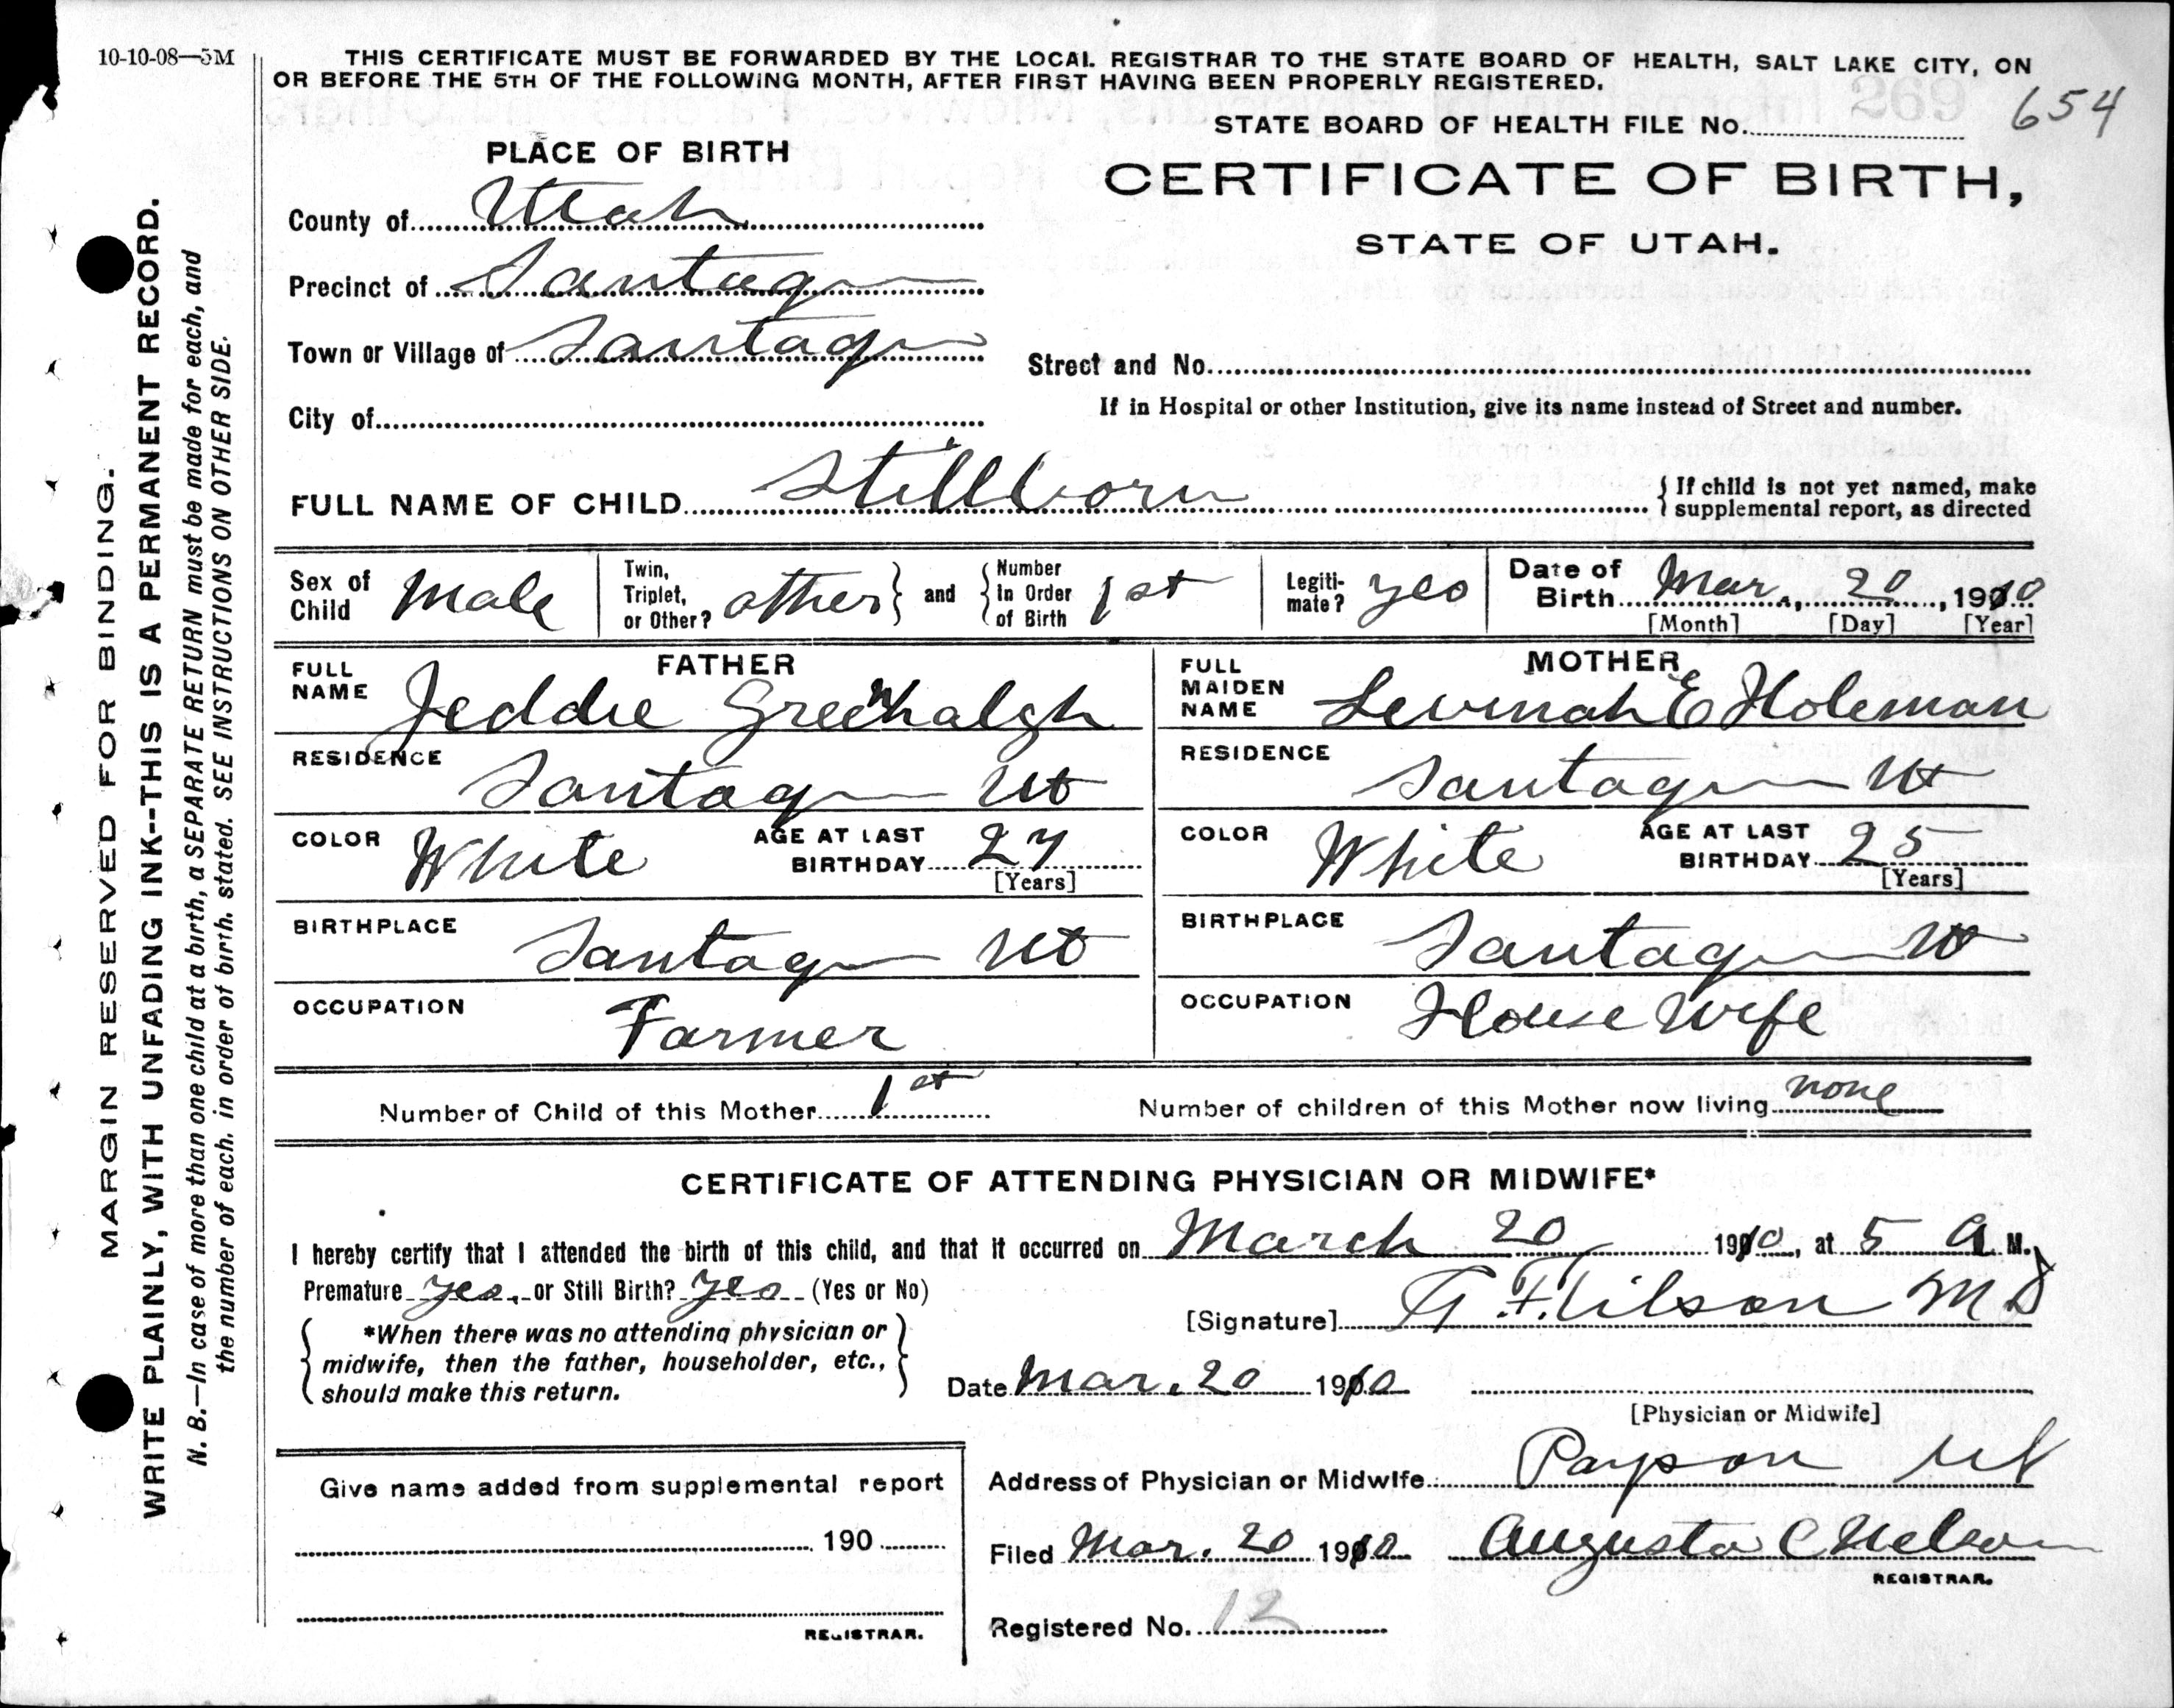 10-10-08—5M
THIS CERTIFICATE MUST BE FORWARDED BY THE LOCAL REGISTRAR TO THE STATE BOARD OF HEALTH, SALT LAKE CITY, ON
OR BEFORE THE 5TH OF THE FOLLOWING MONTH, AFTER FIRST HAVING BEEN PROPERLY REGISTERED.
STATE BOARD OF HEALTH FILE No. 654
PLACE OF BIRTH
CERTIFICATE OF BIRTH,
STATE OF UTAH.
County of Utah
Precinct of Santaquin
Town or Village of Santaquin
Street and No.
If in Hospital or other Institution, give its name instead of Street and number.
City of
FULL NAME OF CHILD Stillborn
{ If child is not yet named, make
supplemental report, as directed
Sex of Child Male
Twin, Triplet, or Other? other } and { Number In Order of Birth 1st
Legitimate? yes
Date of Birth Mar. 20, 1910
[Month] [Day] [Year]
FATHER
FULL NAME Jeddie Greenhalgh
RESIDENCE Santaquin Ut
COLOR White AGE AT LAST BIRTHDAY 27
[Years]
BIRTHPLACE Santaquin Ut
OCCUPATION Farmer
MOTHER
FULL MAIDEN NAME Levinah E Holeman
RESIDENCE Santaquin Ut
COLOR White AGE AT LAST BIRTHDAY 25
[Years]
BIRTHPLACE Santaquin Ut
OCCUPATION House Wife
Number of Child of this Mother 1st
Number of children of this Mother now living none
CERTIFICATE OF ATTENDING PHYSICIAN OR MIDWIFE*
I hereby certify that I attended the birth of this child, and that it occurred on March 20, 1910, at 5 A. M.
Premature yes, or Still Birth? yes (Yes or No)
[Signature] Wilson M D
*When there was no attending physician or
midwife, then the father, householder, etc.,
should make this return.
Date Mar. 20 1910
[Physician or Midwife]
Give name added from supplemental report
190
REGISTRAR.
Address of Physician or Midwife Payson Ut
Filed Mar. 20 1910 Augusta C Nelson
REGISTRAR.
Registered No. 12
MARGIN RESERVED FOR BINDING.
WRITE PLAINLY, WITH UNFADING INK--THIS IS A PERMANENT RECORD.
N. B.—In case of more than one child at a birth, a SEPARATE RETURN must be made for each, and
the number of each, in order of birth, stated. SEE INSTRUCTIONS ON OTHER SIDE.